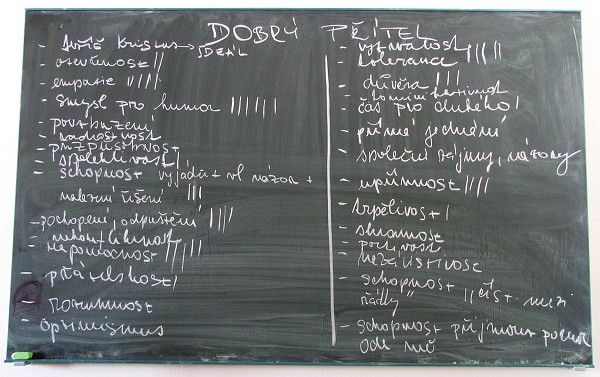 DOBRÝ PŘÍTEL
- Ježíš Kristus → IDEÁL
- otevřenost ||
- empatie ||||
- smysl pro humor ||||||
- povzbuzení
- přizpůsivost
- spolehlivost |
- schopnost vyjádřit vl názor +
nalezení řešení |||
- pochopení, odpuštění ||||
- nápomocnost
- přátelskost |
- rozumnost
- optimismus
- vytrvalost
- tolerance |||||
- důvěra |||
- čas pro druhého |
- přímé jednání
- společné zájmy, názory
- upřímnost ||||
- trpělivost |
- skromnost
- poctivost
- nezávistivost
- schopnost "číst mezi
řádky"
- schopnost přijmout pomoc
ode mě